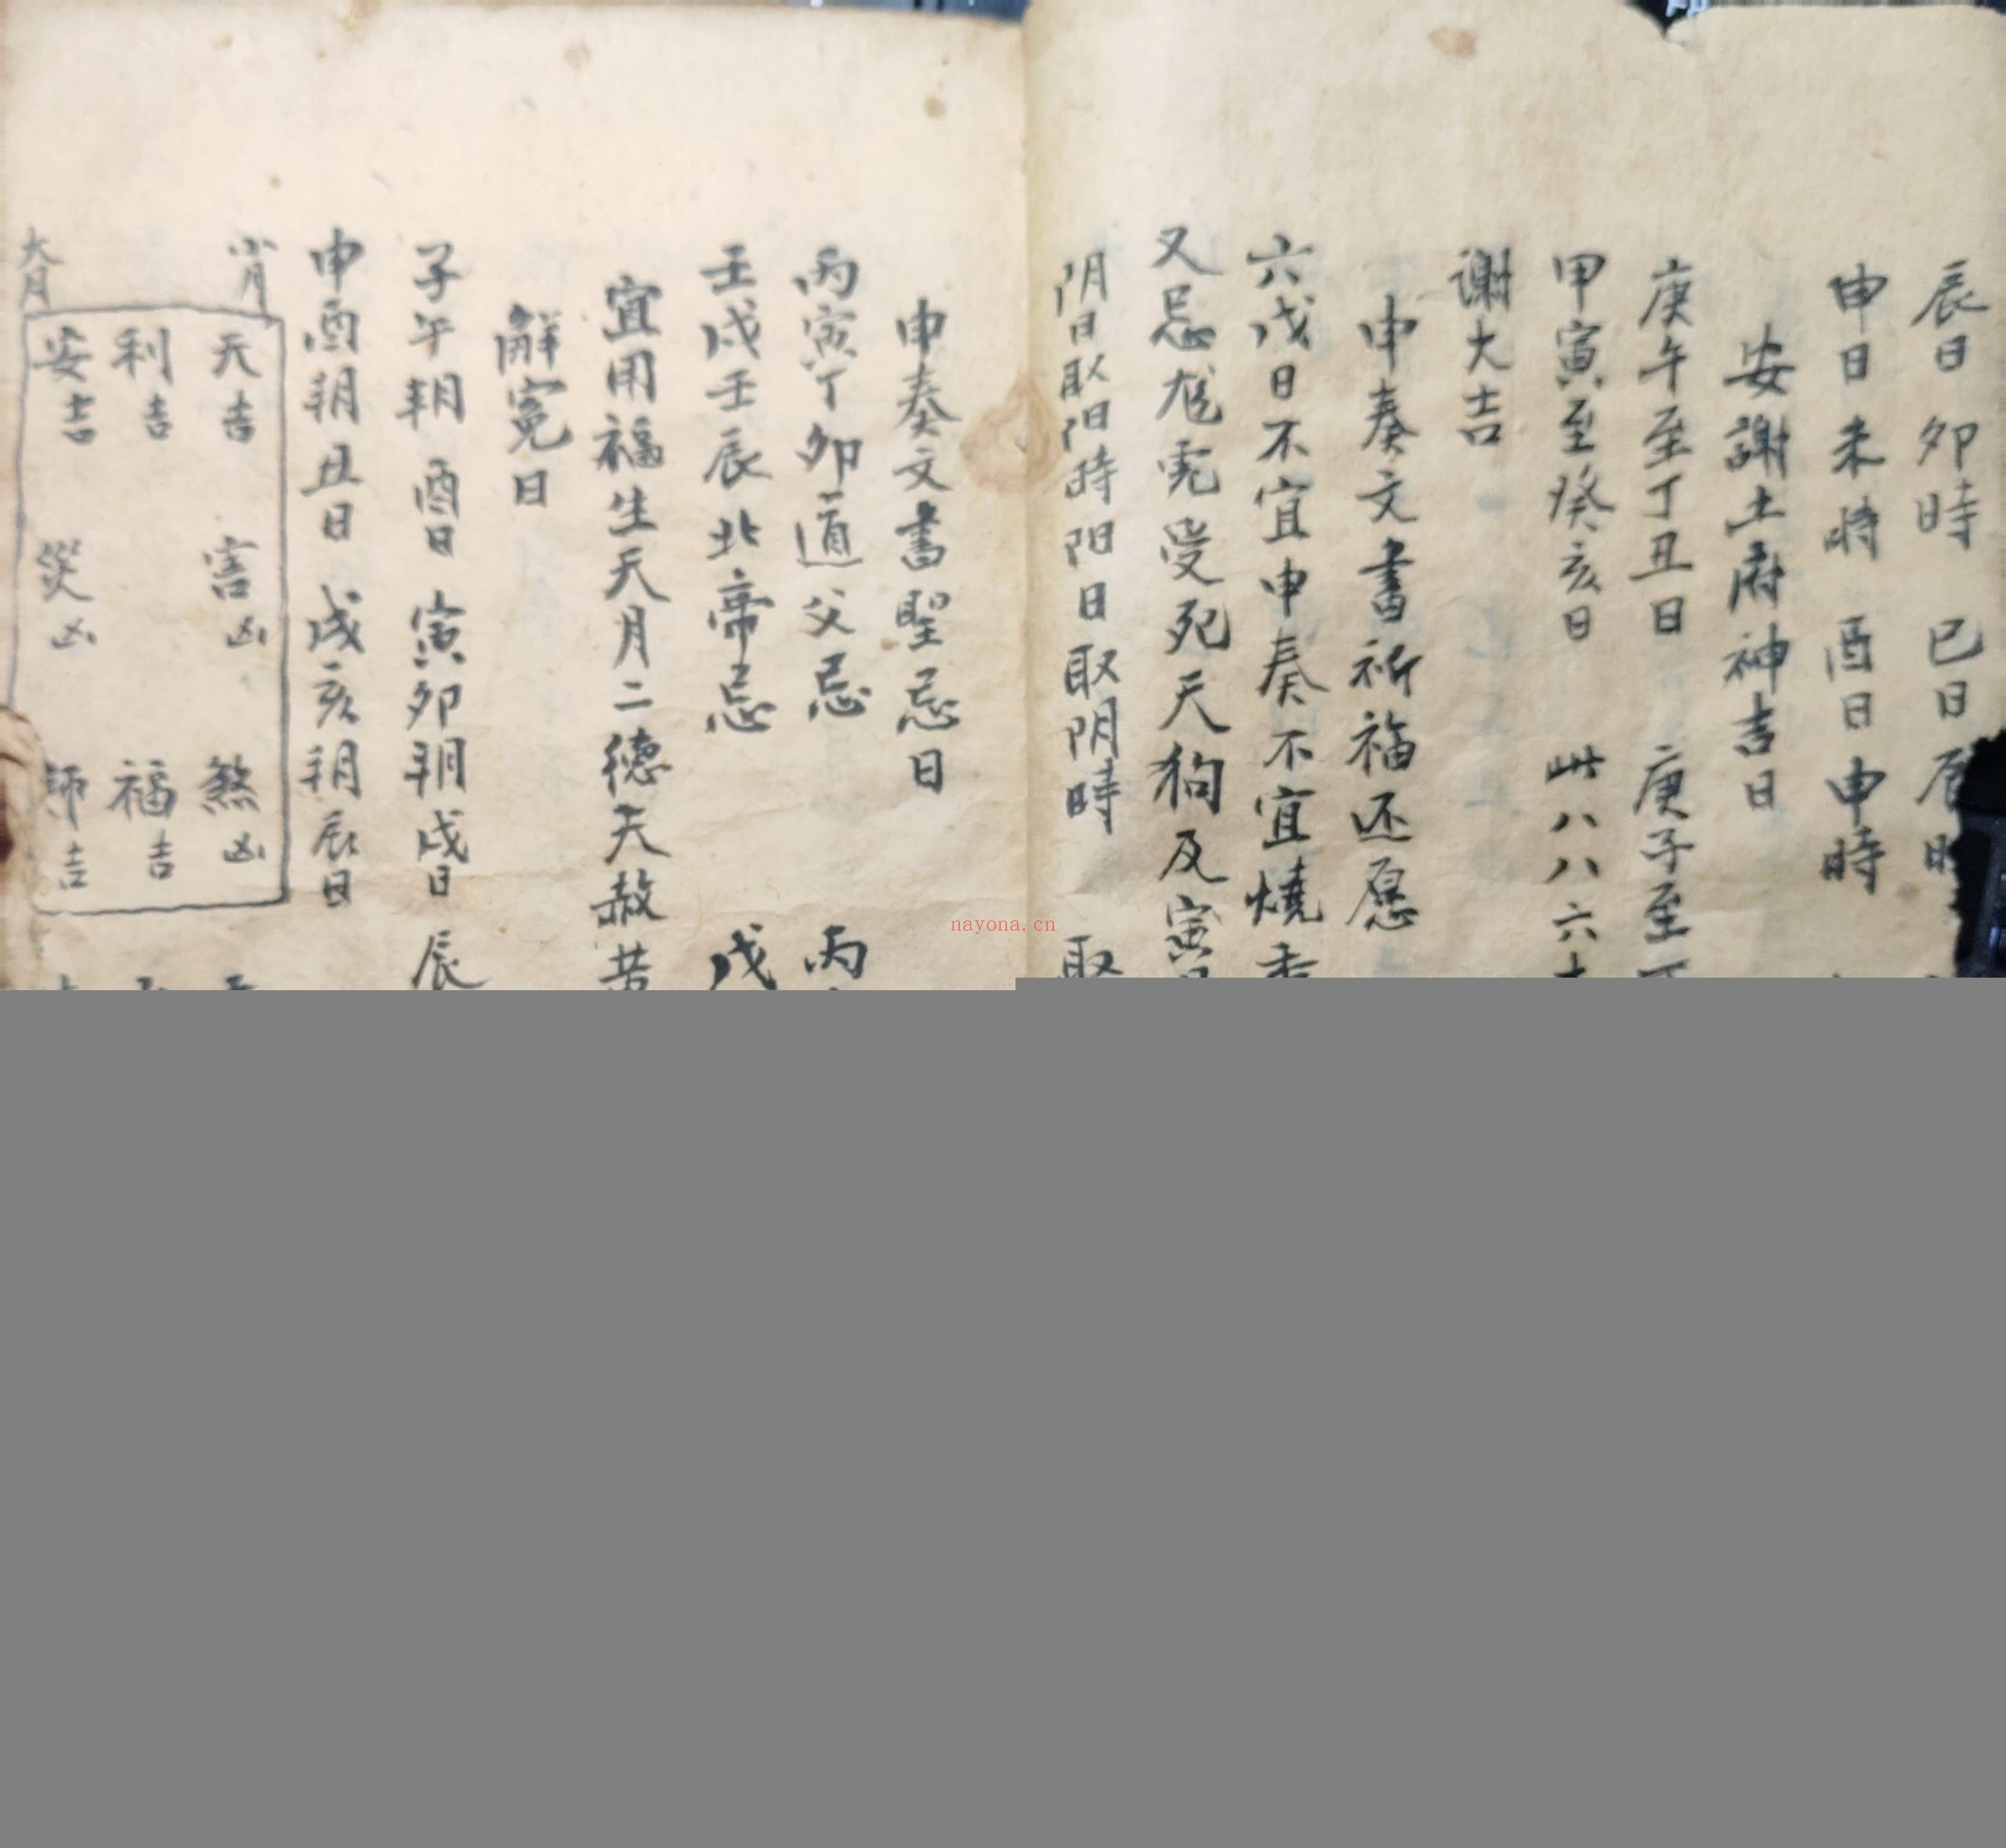 辰日卯時 巳日辰時
申日未時 酉日申時
安謝土府神吉日
庚午至丁丑日 庚子至丁
甲寅至癸亥日 此八八六十
謝大吉
申奏文書祈福还愿
六戊日不宜申奏不宜燒香
又忌尨虎受死天狗及寅日
阴日取阳時阳日取阴時 取
申奏文書聖忌日
丙寅丁卯道父忌 丙
壬戌壬辰北帝忌 戊
宜用福生天月二德天赦
解冤日
子午朝 酉日 寅卯朝戌日 辰
申酉朝丑日 戌亥朝辰日
小月 天吉 害凶 煞凶 天
利吉 福吉
大月 安吉 災凶 師吉
nayona.cn